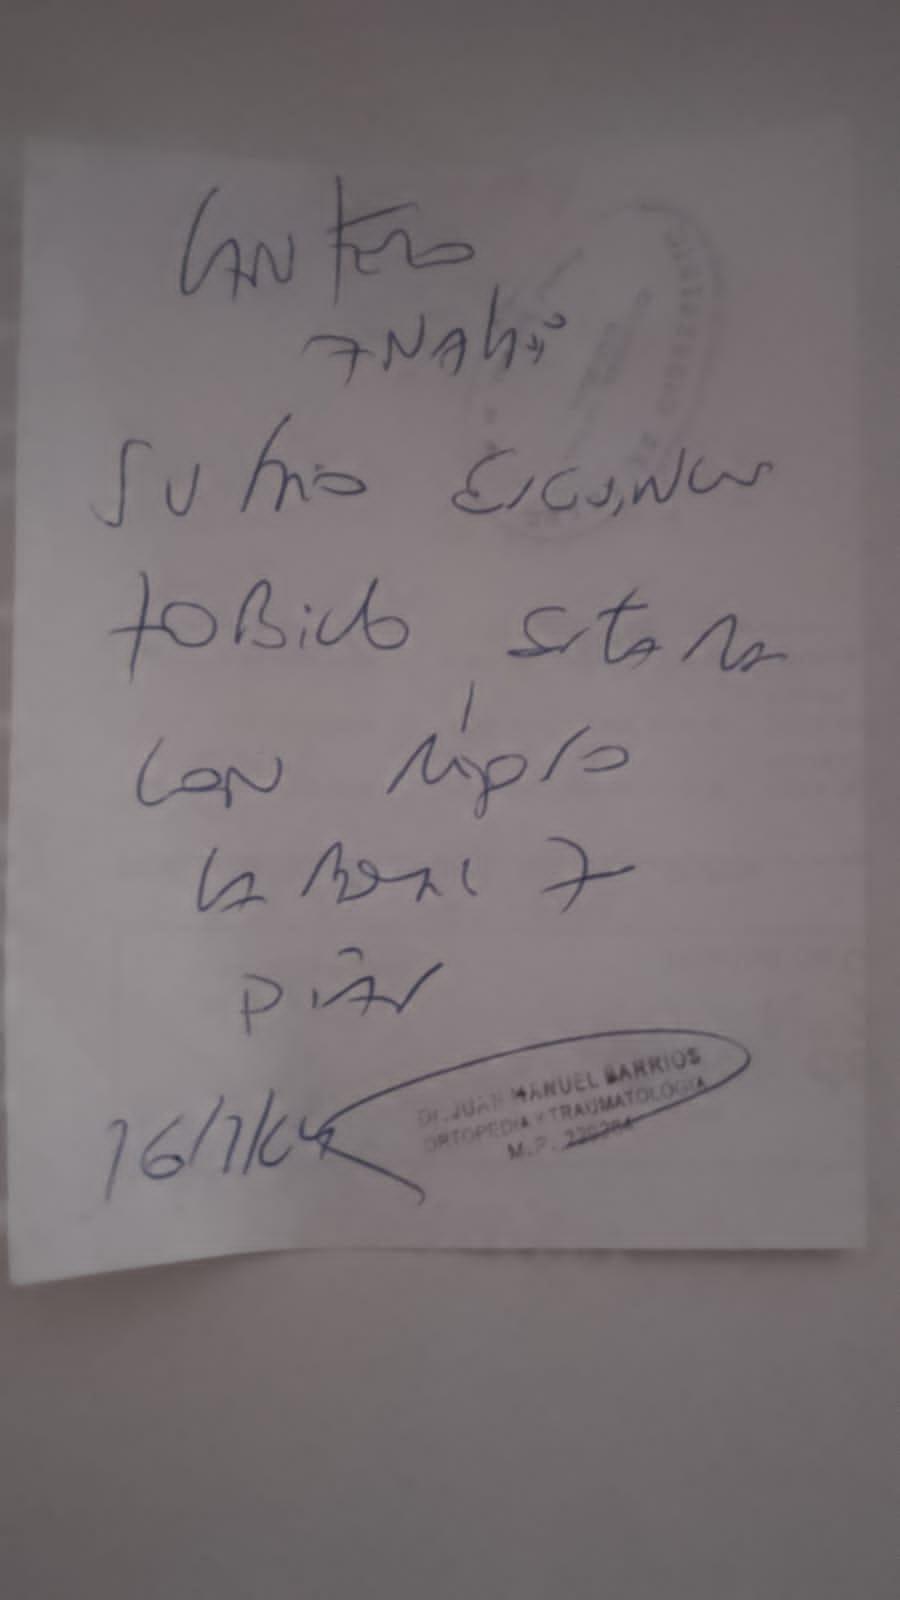 CANTERO
ANAHÍ
SUFRIO ESGUINCE
TOBILLO ESTARA
CON REPOSO
LABORAL 7
DIAS
16/1/24
Dr. JUAN MANUEL BARRIOS
ORTOPEDIA Y TRAUMATOLOGIA
M.P.